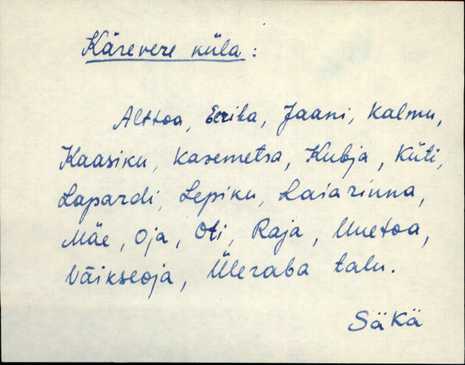 Kärevere küla:
Alttoa, Eeriba, Jaani, Kalmu,
Kaasiku, Kasemetsa, Kubja, Küti,
Lapardi, Lepiku, Laiarinna,
Mäe, Oja, Oti, Raja, Uuetoa,
Väikseoja, Üleraba talu.
SäKä